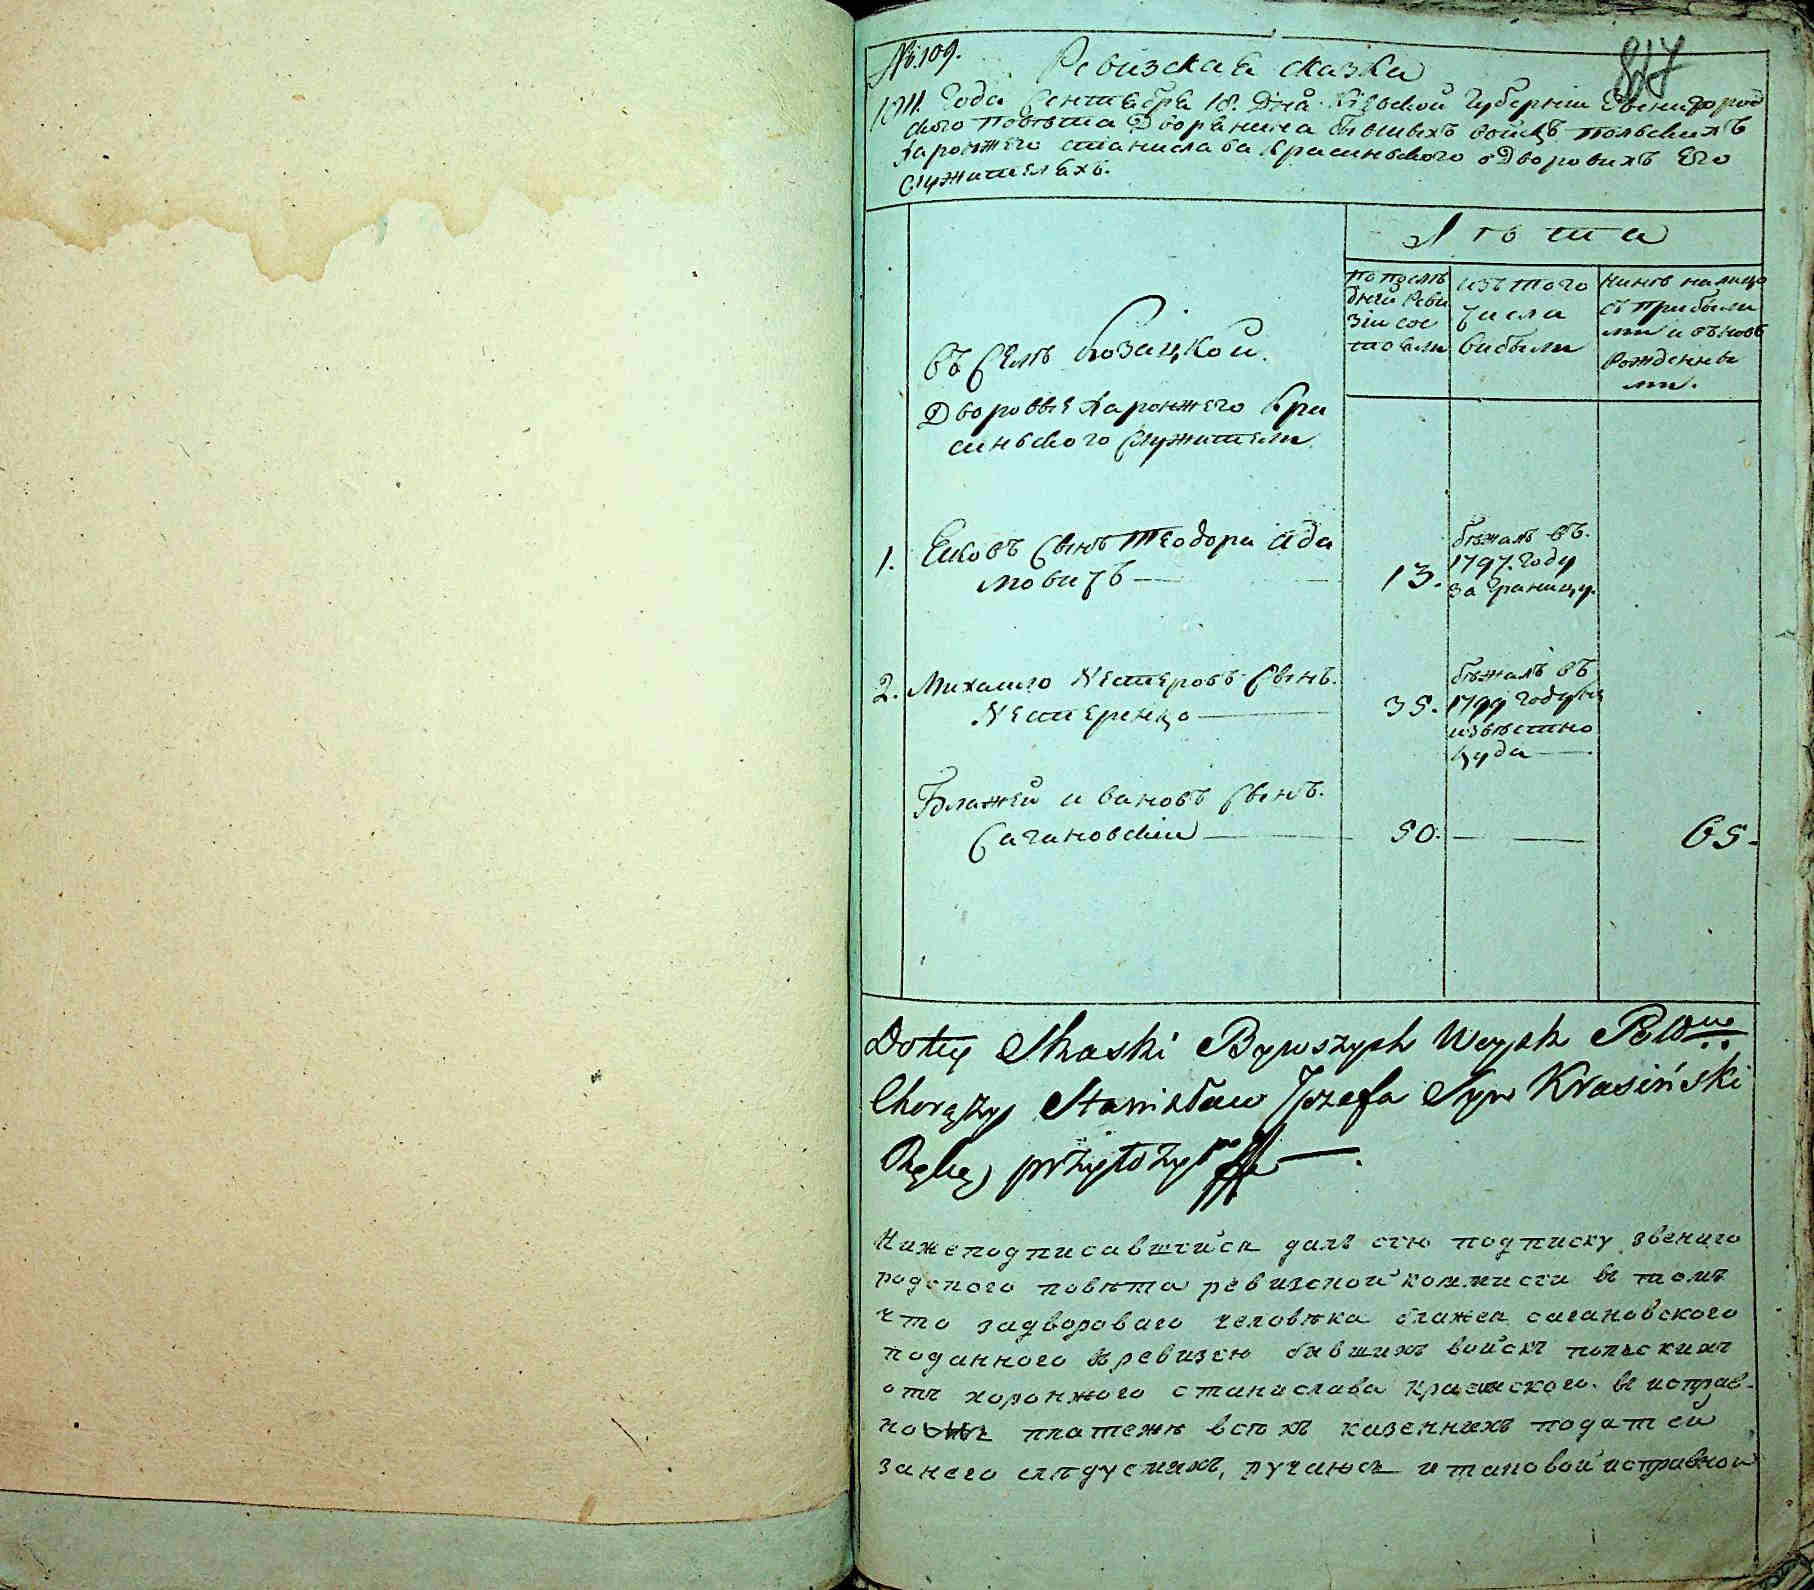 № 109.
817
Ревизская сказка
1811. Года Сентебра 18. Дна Киевской Губернiи Звенигород
ского Повѣта Дворанина бывшихъ войскъ польскихъ
Харонжего станислава Красиньского о Дворовихъ Его
Служителахъ.
Лѣта
по послѣ
дней Реви
зiи сос
тоали
изъ того
числа
вибыли
нинѣ налицо
съ прибыли
ми и вѣновѣ
Рожденны
ми.
Въ Селѣ Козацкой.
Дворовые Харонжего Кра
синьского Служители.
1. Ековъ Сынъ Теодора Ада
мовичъ — 13.
бѣжалъ въ
1797. Году
за Границу.
2. Михаило Нестеровъ Сынъ.
Нестеренко — 35.
бѣжалъ въ
1799 Году не
извѣстно
куда —
Блажей ивановъ Сынъ.
Сагановскiй — 50. — 65.
Do tey Skaski Bywszych Woysk Polskie
Chorąży Stanisław Jozefa Syn Krasiński
Rękę przyłożył —
Нижеподписавшiйся далъ сiю подписку звениго
родского повѣта ревизской коммисiи въ томъ
что задвороваго человѣка блажея сагановского
поданного въ ревизiю бывшихъ войскъ полскихъ
отъ хоронжого станислава красинского. въ исправ-
но платежѣ всѣхъ казеннихъ податей
за него слѣдуемихъ, ручаюсь и таковой исправной